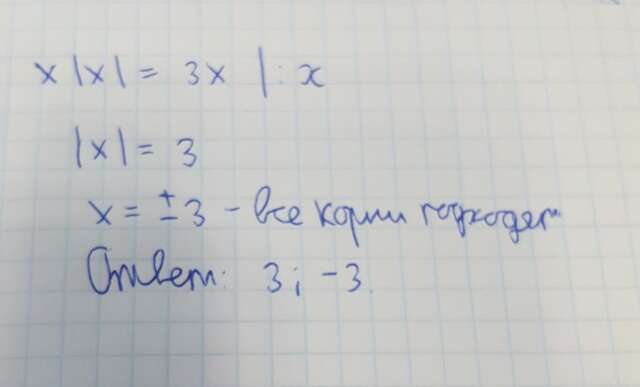 x|x| = 3x |: x
|x| = 3
x = ±3 – все корни подходят
Ответ: 3; -3.